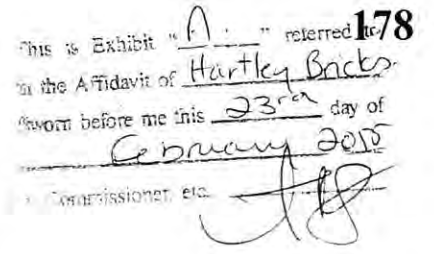 This is Exhibit "A." referred to 178
in the Affidavit of Hartley Bricks.
sworn before me this 23rd day of
February 2015
Commissioner, etc.